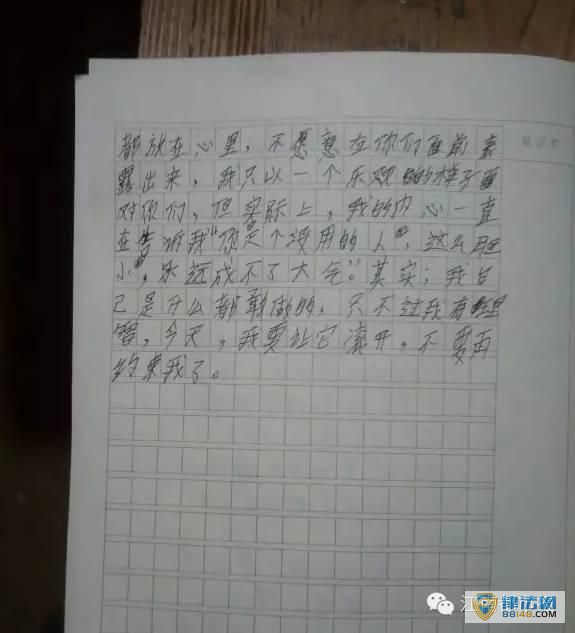 都放在心里，不愿意在你们面前表
露出来，我只以一个乐观的样子面
对你们，但实际上，我的内心一直
在告诉我"你是个没用的人，这么胆
小，永远成不了大气。"其实；我自
己是什么都敢做的，只不过我有理
智，今天，我要让它滚开，不要再
约束我了。
律法网
88148.COM